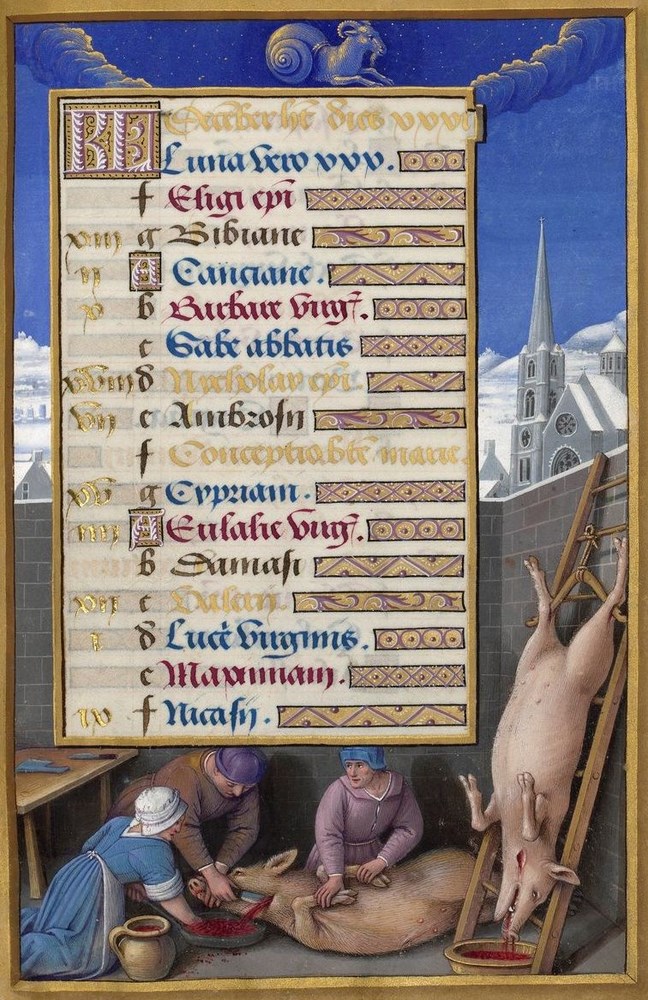 KL December h̄t dies xxxi
Luna vero xxx.
f Eligi ep̄i
xiii g Bibiane
ii A Canciane.
x b Barbare virg̃.
c Sabe abbatis
xviii d Nycholay ep̄i.
vii e Ambrosij
f Conceptio bt̄e marie.
xv g Cypriani.
iiii A Eulalie virg̃.
b Damasi
xii c Valerij.
i d Lucē virginis.
e Maximiani.
ix f Nicasij.